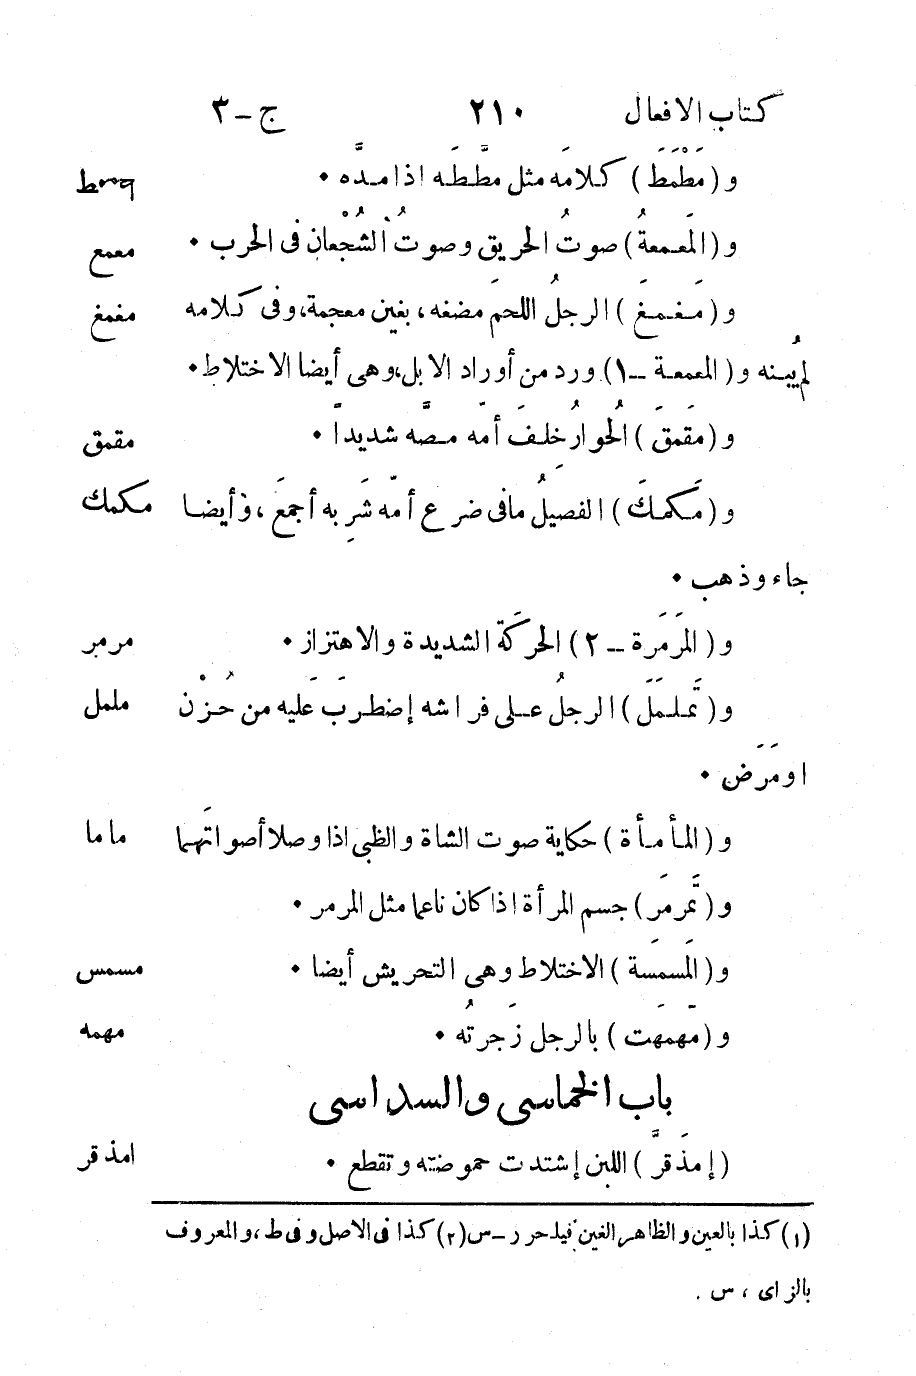 كتاب الافعال ٢١٠ ج-٣
و (مَطْمَطَ) كلامَه مثل مطَّطَه اذا مدَّه • مطمط
و (المَعمعةُ) صوتُ الحريق وصوتُ الشُجْعانِ فى الحرب • معمع
و (مَغمغَ) الرجلُ اللحمَ مضغه، بغين معجمة، وفى كلامه مغمغ
لم يُبينه و (المعمعة -١) ورد من أوراد الابل، وهى أيضا الاختلاط •
و (مَقمَقَ) الحُوارُ خِلفَ أمّه مصَّه شديداً • مقمق
و (مَكمكَ) الفصيلُ مافى ضرع أمّه شَرِبه أجمعَ، و أيضا مكمك
جاء وذهب •
و (المَرمَرة -٢) الحركَة الشديدة والاهتزاز • مرمر
و (تَّملمَلَ) الرجلُ على فراشه إضطربَ عَليه من حُزْن ململ
اومَرَض •
و (المأمأة) حكاية صوت الشاة والظبى اذا وصلا أصواتَهما ماما
و (تَّمرمَرَ) جسم المرأة اذاكان ناعما مثل المرمر •
و (المَسمسَة) الاختلاط وهى التحريش أيضا • مسمس
و (مَهمَهت) بالرجل زَجرتُه • مهمه
باب الخماسى والسداسى
(إمذَقرَّ) اللبن إشتدت حموضته وتقطع • امذقر
(١) كذا بالعين والظاهر الغين فيلحرر-س (٢) كذا فى الاصل وفى ط، والمعروف
بالزاى، س.